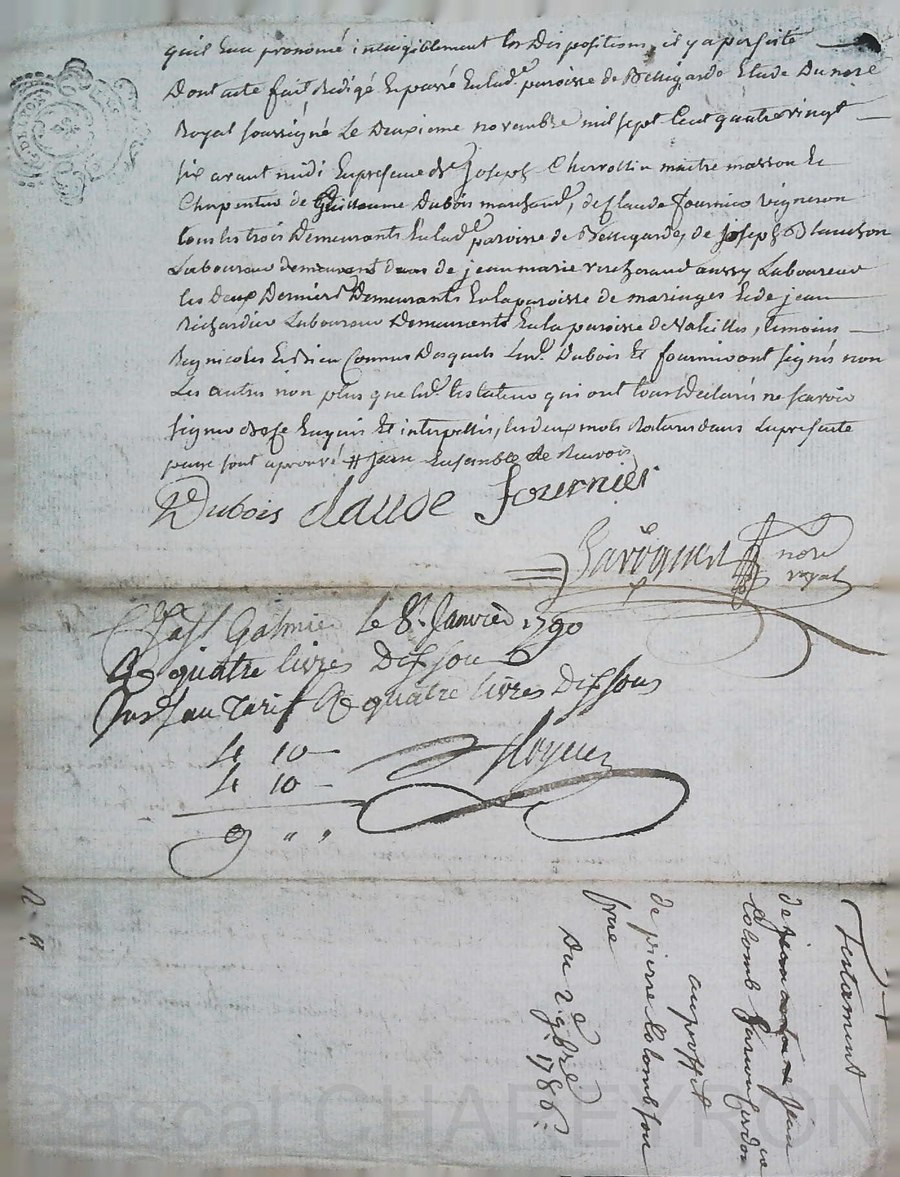 quil a prononcé intelligiblement les Dispositions, il y a persisté
Dont acte fait Redigé et passé en lad.e paroisse de Bellegarde Etude Du nore
Royal soussigné Le Deuxieme novembre mil sept Cent quatre vingt
six avant midi En presence de Joseph maitre masson et
Charpentier de Guillaume Dubois marchand, de Claude fournier vigneron
tous les trois Demeurants En lad.e paroisse de Bellegarde, de Joseph Blanchon
Laboureur demeurant de jean marie aussy Laboureur
les Deux Derniers Demeurants En la paroisse de maringes et de jean
Richardier Laboureur Demeurents En la paroisse de Valeilles, temoins
Regnicoles Connus Desquels Dubois et fournier ont signés non
Les autres non plus que led. testateur qui ont tous Declarés ne scavoir
signer de ce Enquis et interpellés, les deux mots Raturés dans La presente
page sont aprouvé # jean Ensemble de
Dubois Claude fournier
nore
royal
Cllé a St Galmier le 8e Janvier 1790
R quatre livres Dix sous
au Tarif R quatre livres Dix sous
4 10 -
4 10 -
9 " "
Testament
de Jean
Colomb
au proffit
de pierre Colomb son
frere
Du 2e 9bre 1786.
Pascal CHAREYRON